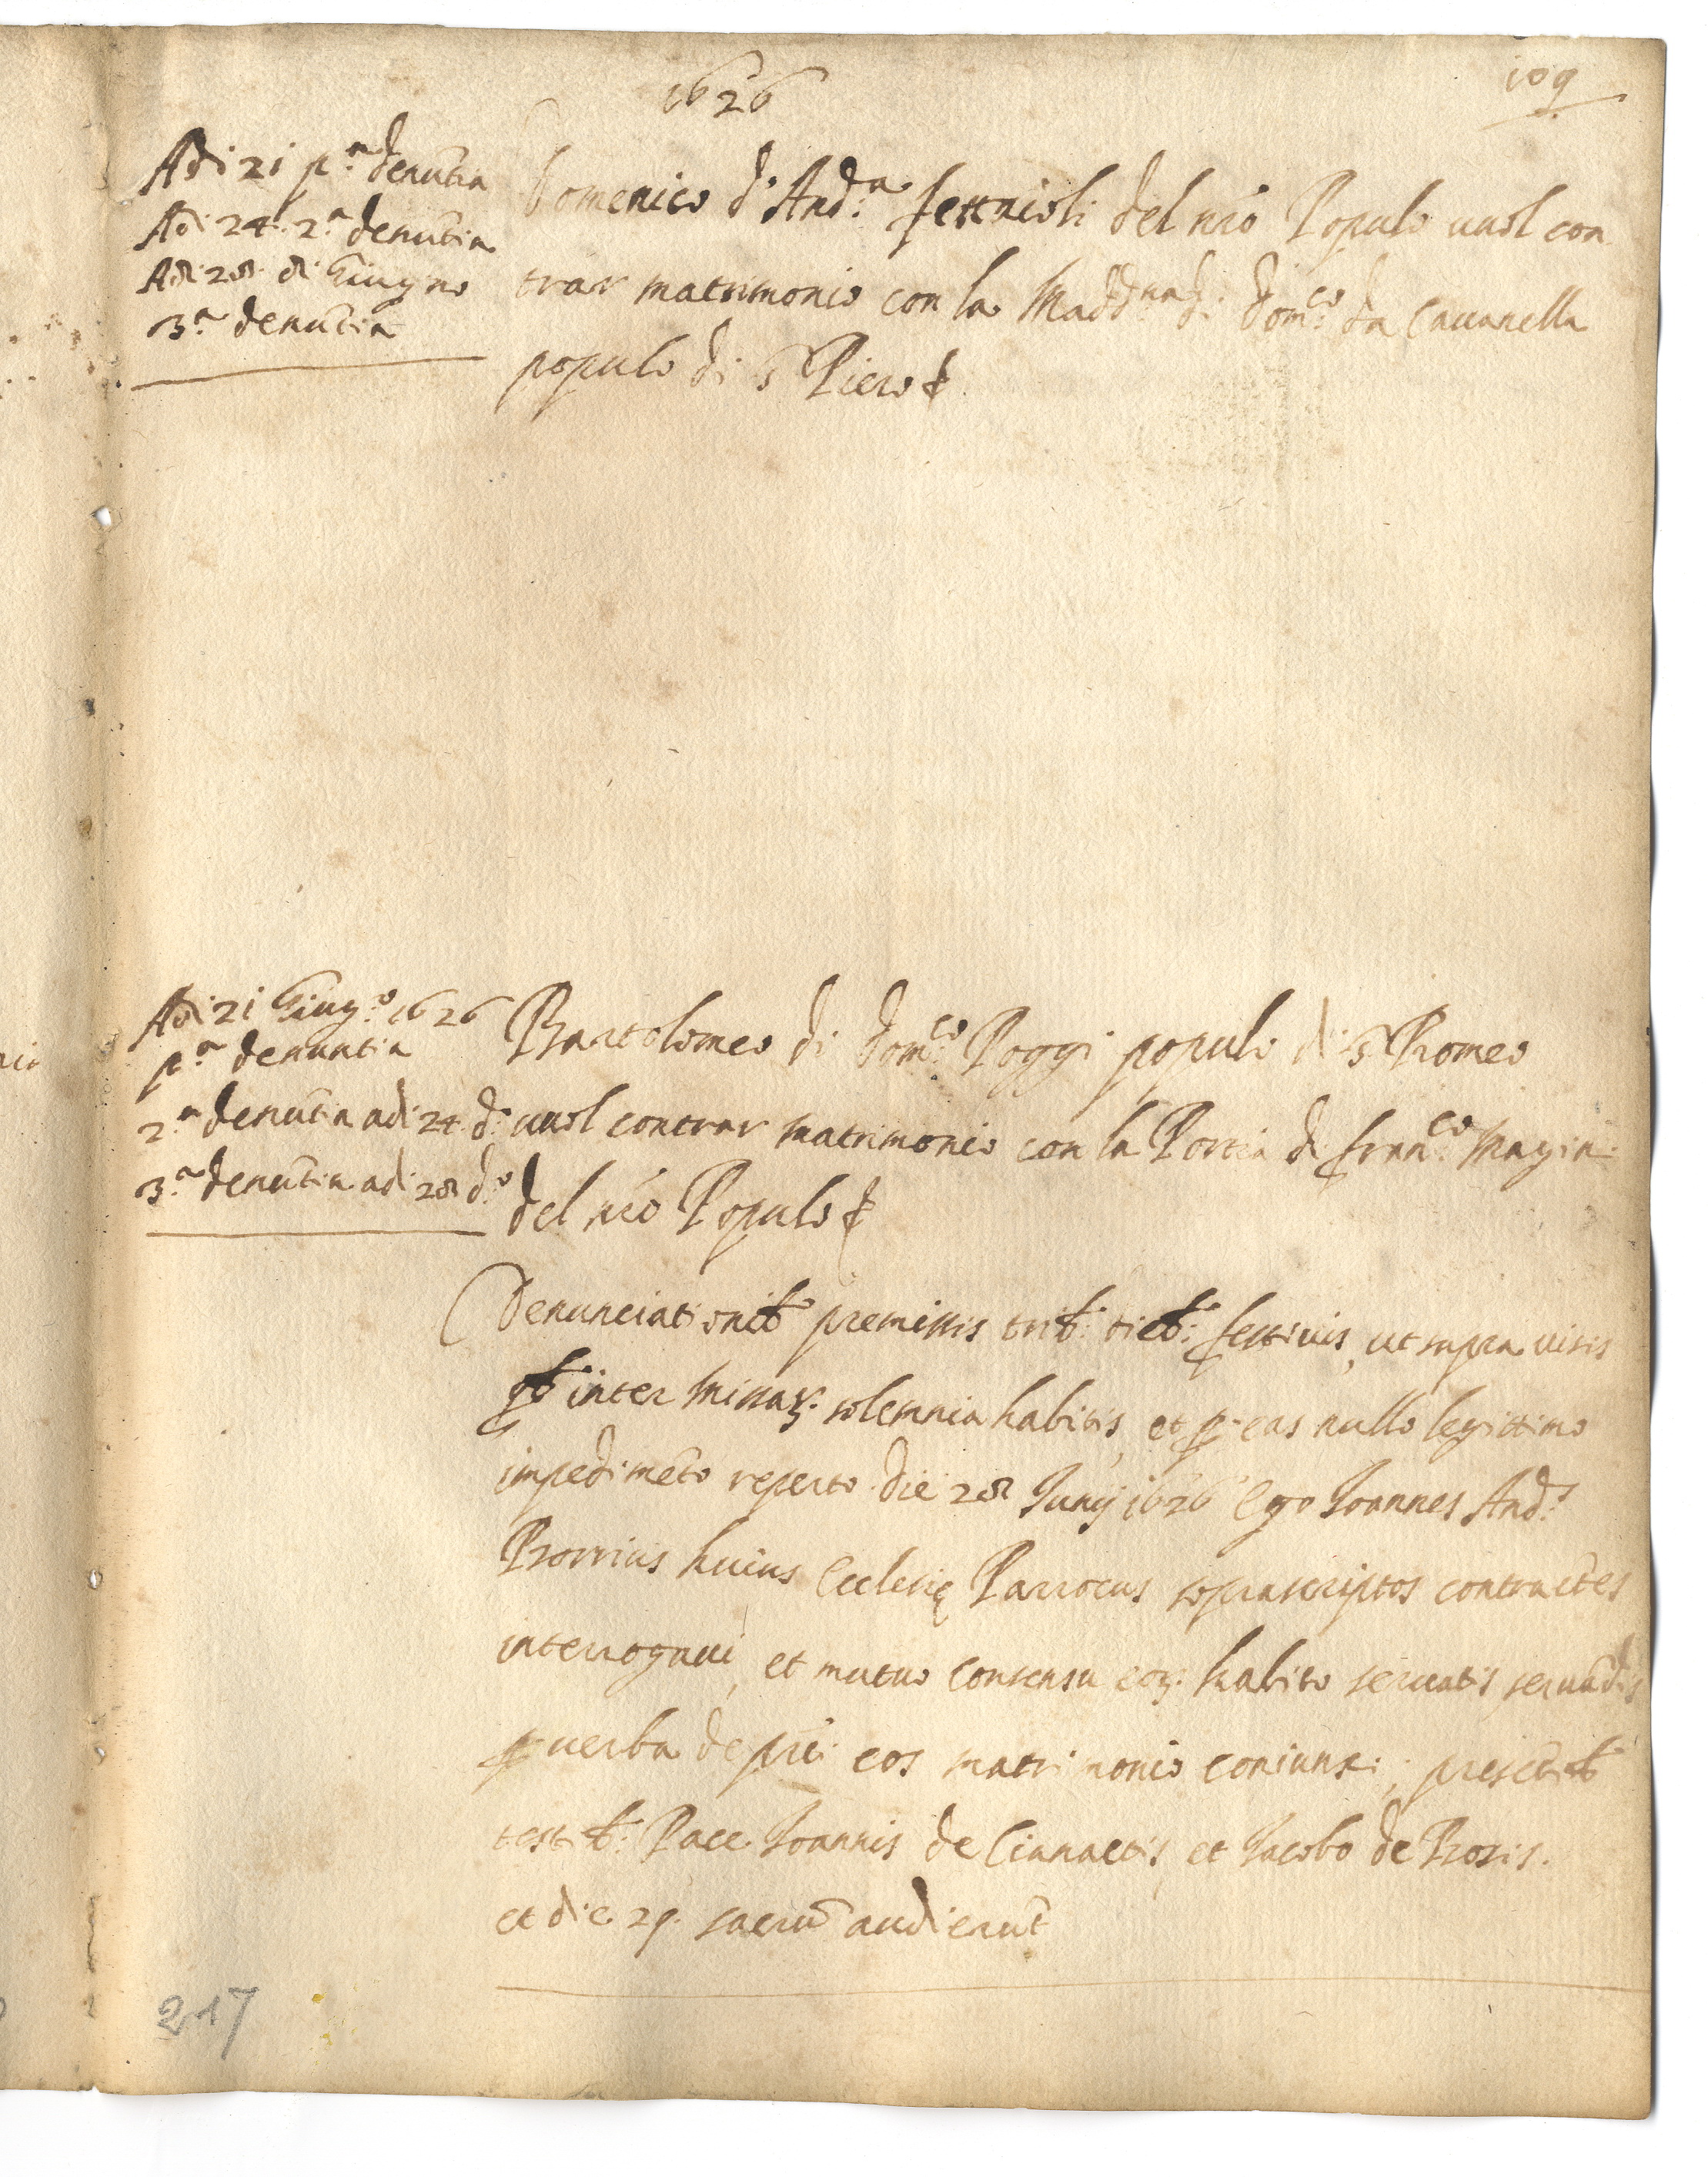 1626
109
Adi 21 p.a denūtia
Adi 24. 2.a denūtia
Adi 28. di Giugno
3.a denūtia
Domenico d'And.a Festaioli del nr̄o Populo uuol con
trar matrimonio con la Madd.na di Dom.co da Cauanella
populo di S Piero &
Adi 21 Giug.o 1626
p.a denuntia
2.a denūtia adi 24 d.o
3.a denūtia adi 28 d.o
Bartolomeo di Dom.co Poggi populo di S Romeo
uuol contrar matrimonio con la Portia di Fran.co Magin
del nr̄o Populo &
Denunciationib. premissis trib: dieb: festiuis, ut supra uisis
inter Missaꝝ: solemnia habitis, et p. eas nullo legittimo
impedimēto reperto die 28 Junij 1626 Ego Joannes And.s
huius Ecclesię Parrocus soprascriptos contractēs
interrogaui, et mutuo consensu eoꝝ: habito seruatis seruādis
p uerba de prē: eos matrimonio coniunxi; presētib
testib: Pace Joannis de Cianactis, et Jacobo de Rosis.
et die 29. sacrū audierūt
217